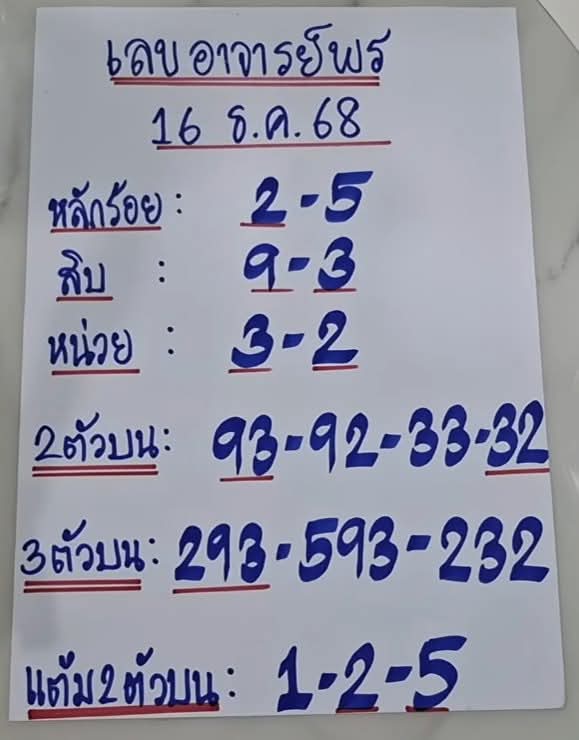 เลขอาจารย์พร
16 ธ.ค. 68
หลักร้อย : 2-5
สิบ : 9-3
หน่วย : 3-2
2ตัวบน : 93-92-33-32
3ตัวบน : 293-593-232
แต้ม2ตัวบน : 1-2-5